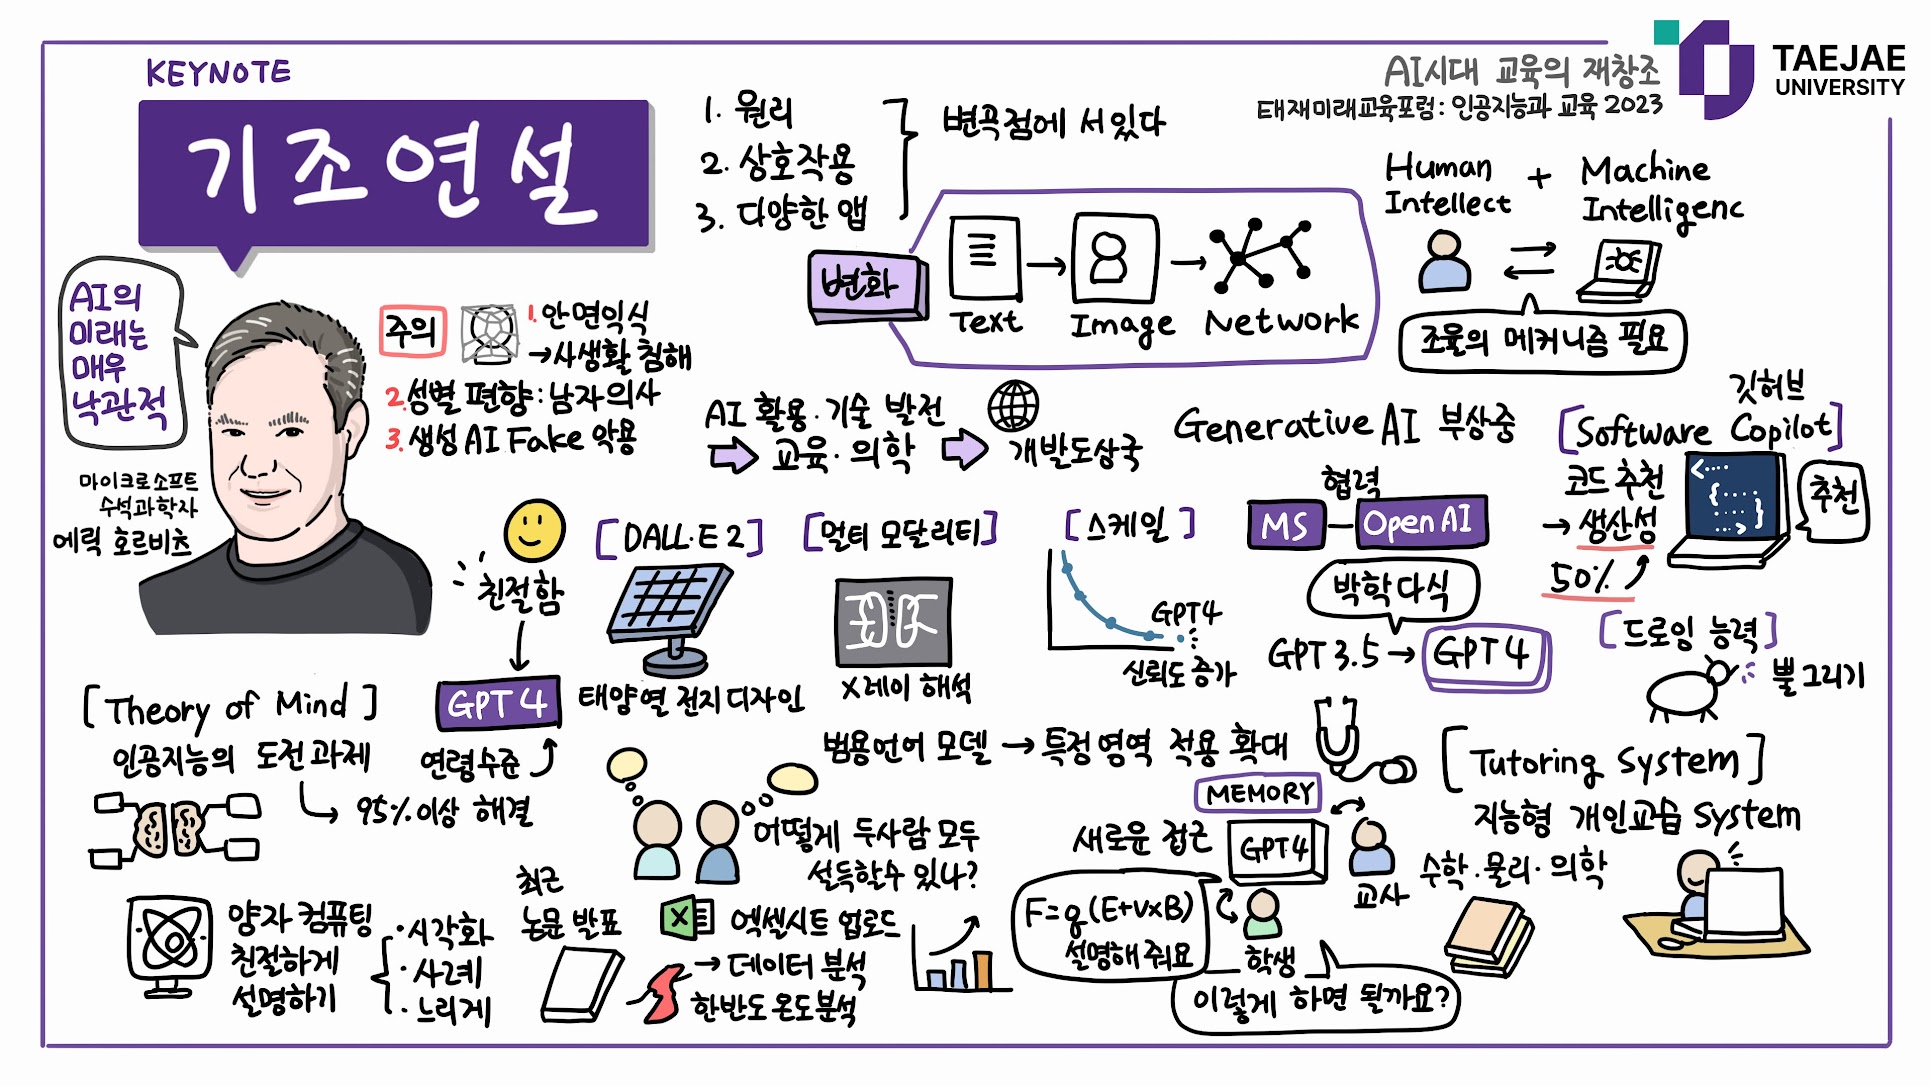 KEYNOTE
기조연설
AI시대 교육의 재창조
태재미래교육포럼: 인공지능과 교육 2023
TAEJAE
UNIVERSITY
AI의
미래는
매우
낙관적
마이크로소프트
수석과학자
에릭 호르비츠
주의
1. 안면익식
→사생활 침해
2. 성별 편향: 남자의사
3. 생성 AI Fake 악용
1. 원리
2. 상호작용
3. 다양한 앱
변곡점에 서있다
변화
Text
Image
Network
Human
Intellect
+
Machine
Intelligenc
조율의 메커니즘 필요
AI 활용·기술 발전
교육·의학
개발도상국
Generative AI 부상중
협력
MS
OpenAI
박학다식
GPT 3.5 → GPT 4
깃허브
[Software Copilot]
코드 추천
→ 생산성
50%
추천
[드로잉 능력]
뿔 그리기
친절함
GPT 4
연령수준
[DALL·E 2]
태양열 전지 디자인
[멀티 모달리티]
X레이 해석
[스케일]
GPT4
신뢰도 증가
[Theory of Mind]
인공지능의 도전과제
95% 이상 해결
어떻게 두사람 모두
설득할수 있나?
범용언어 모델 → 특정영역 적용 확대
양자 컴퓨팅
친절하게
설명하기
·시각화
·사례
·느리게
최근
논문 발표
X
엑셀시트 업로드
→ 데이터 분석
한반도 온도분석
MEMORY
새로운 접근
GPT4
교사
F=q(E+v×B)
설명해 줘요
학생
이렇게 하면 될까요?
[Tutoring System]
지능형 개인교습 System
수학·물리·의학